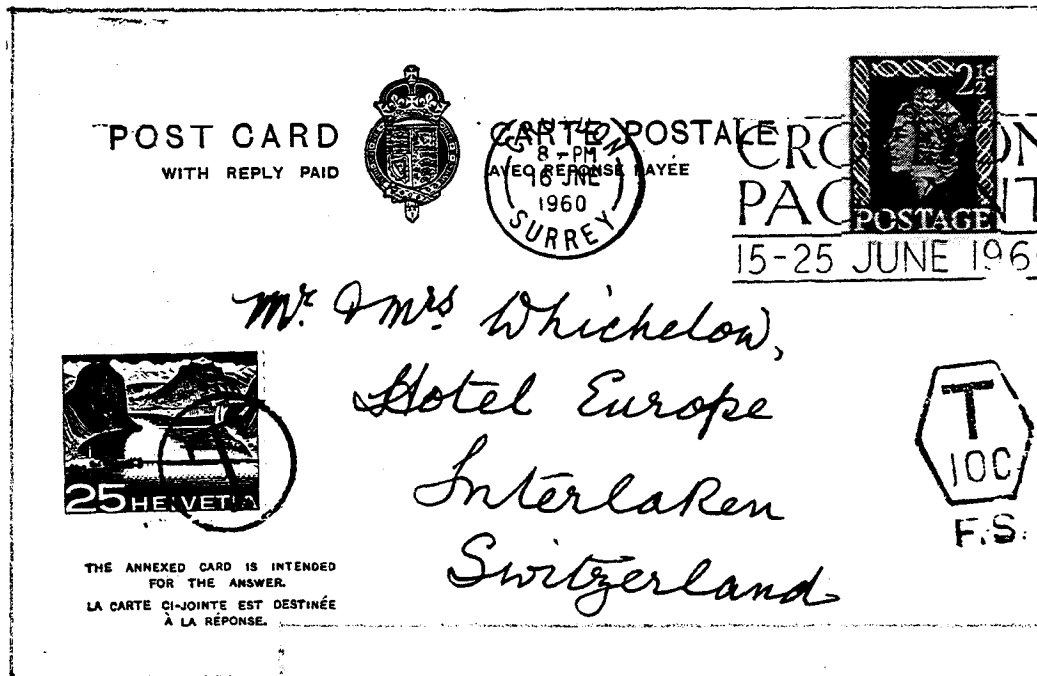 POST CARD
WITH REPLY PAID
CARTE POSTALE
AVEC RÉPONSE PAYÉE
8-PM
16 JNE
1960
SURREY
2½d
POSTAGE
15-25 JUNE 196
Mr. & Mrs Whichelow,
Hotel Europe
Interlaken
Switzerland
25 HELVETIA
T
10C
F.S.
THE ANNEXED CARD IS INTENDED
FOR THE ANSWER.
LA CARTE CI-JOINTE EST DESTINÉE
À LA RÉPONSE.